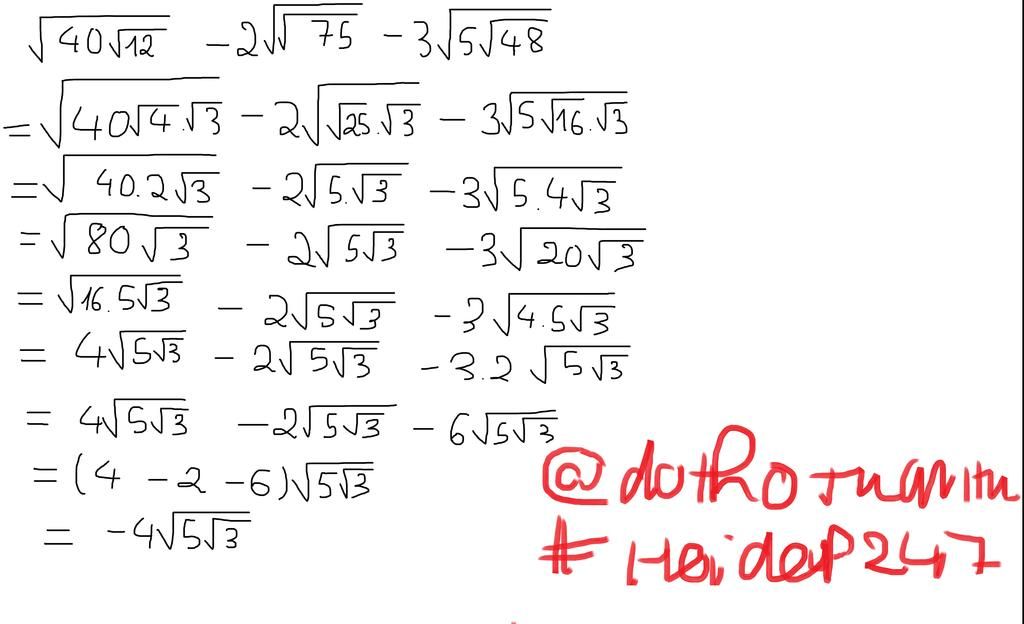 √(40√12) - 2√(√75) - 3√(5√48)
= √(40√4.√3) - 2√(√25.√3) - 3√(5√16.√3)
= √(40.2√3) - 2√(5.√3) - 3√(5.4√3)
= √(80√3) - 2√(5√3) - 3√(20√3)
= √(16.5√3) - 2√(5√3) - 3√(4.5√3)
= 4√(5√3) - 2√(5√3) - 3.2√(5√3)
= 4√(5√3) - 2√(5√3) - 6√(5√3)
= (4 - 2 - 6)√(5√3)
= -4√(5√3)
#HeideP247